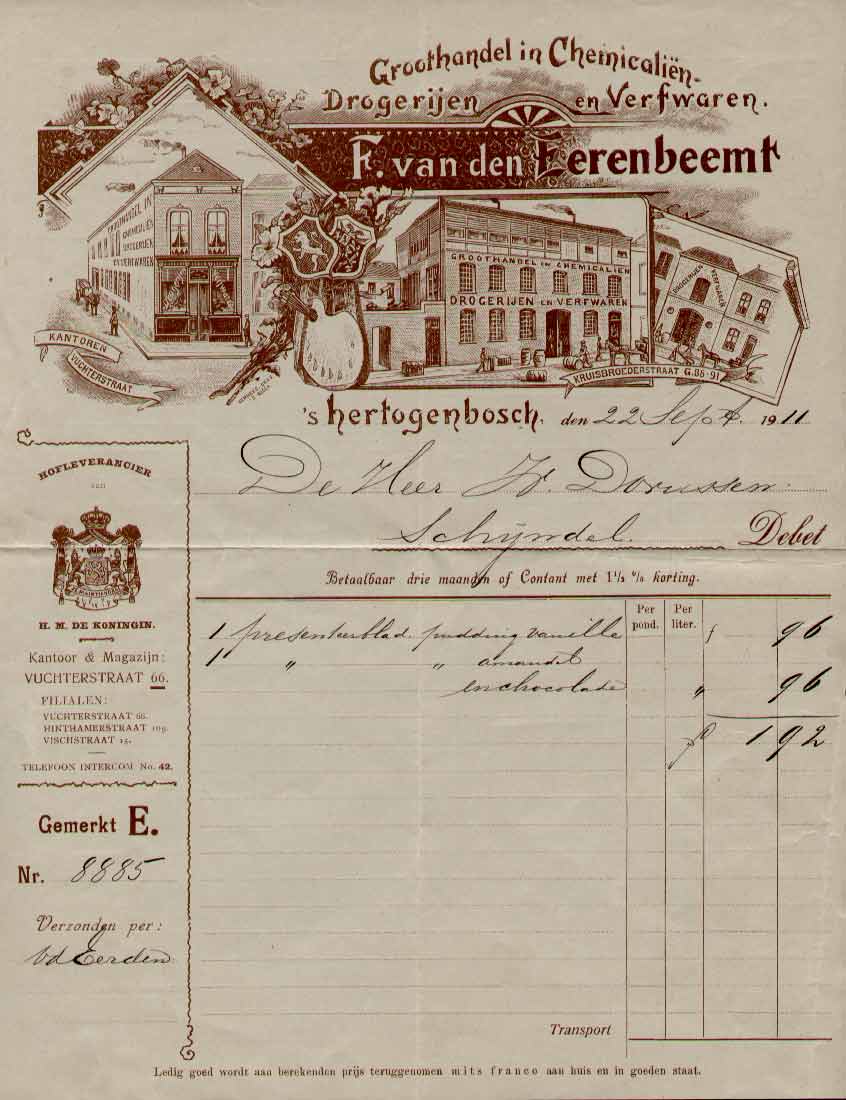 Groothandel in Chemicaliën-
Drogerijen en Verfwaren.
F. van den Eerenbeemt
GROOTHANDEL IN
CHEMICALIEN
DROGERIJEN
EN VERFWAREN
KANTOREN
VUCHTERSTRAAT
GROOTHANDEL IN CHEMICALIEN
DROGERIJEN EN VERFWAREN
DROGERIJEN
VERFWAREN
KRUISBROEDERSTRAAT G.86-91
's hertogenbosch, den 22 Sept 1911
De Heer W. Dorussen
Schijndel. Debet
Betaalbaar drie maanden of Contant met 1 1/2 % korting.
HOFLEVERANCIER
van
H. M. DE KONINGIN.
Kantoor & Magazijn:
VUCHTERSTRAAT 66.
FILIALEN:
VUCHTERSTRAAT 66.
HINTHAMERSTRAAT 109.
VISCHSTRAAT 15.
TELEFOON INTERCOM No. 42.
Gemerkt E.
Nr. 8885
Verzonden per:
vd Eerden
Per pond. Per liter.
1 presenteerblad. pudding vanille f 96
1 " " amandel
en chocolade " 96
f 1 92
Transport
Ledig goed wordt aan berekenden prijs teruggenomen mits franco aan huis en in goeden staat.